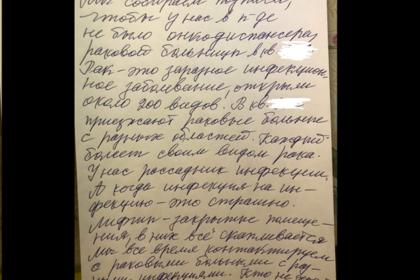 Мы собираем подписи,
чтобы у нас в п-де
не было онкодиспансера,
раковой больницы в кв
Рак-это заразное инфекцион-
ное заболевание, открыли
около 200 видов. В кв
приезжают раковые больные
с разных областей. Каждый
болеет своим видом рака.
У нас рассадник инфекции.
А когда инфекция на ин-
фекцию-это страшно.
Лифты-закрытые помеще-
ния, в них всё скапливается
Мы все время контактируем
с раковыми больными с раз-
ными инфекциями. Кто не